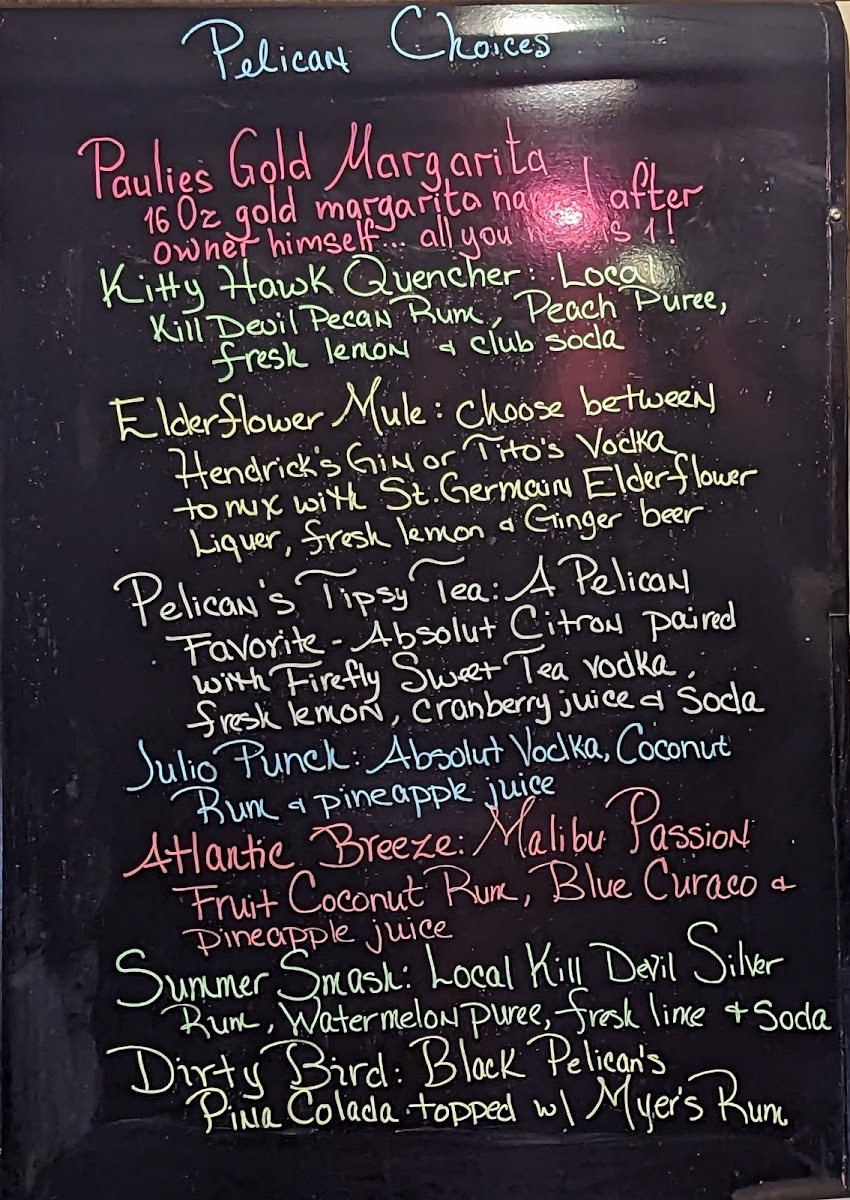 Pelican Choices
Paulies Gold Margarita
16 Oz gold margarita na after
owner himself... all you is 1!
Kitty Hawk Quencher: Local
Kill Devil Pecan Rum, Peach Puree,
fresh lemon & club soda
Elderflower Mule: choose between
Hendrick's Gin or Tito's Vodka
to mix with St. Germain Elderflower
Liquer, fresh lemon & Ginger beer
Pelican's Tipsy Tea: A Pelican
Favorite - Absolut Citron paired
with Firefly Sweet Tea vodka,
fresh lemon, cranberry juice & soda
Julio Punch: Absolut Vodka, Coconut
Rum & pineapple juice
Atlantic Breeze: Malibu Passion
Fruit Coconut Rum, Blue Curaco &
pineapple juice
Summer Smash: Local Kill Devil Silver
Rum, Watermelon puree, fresh lime + Soda
Dirty Bird: Black Pelican's
Pina Colada topped w/ Myer's Rum